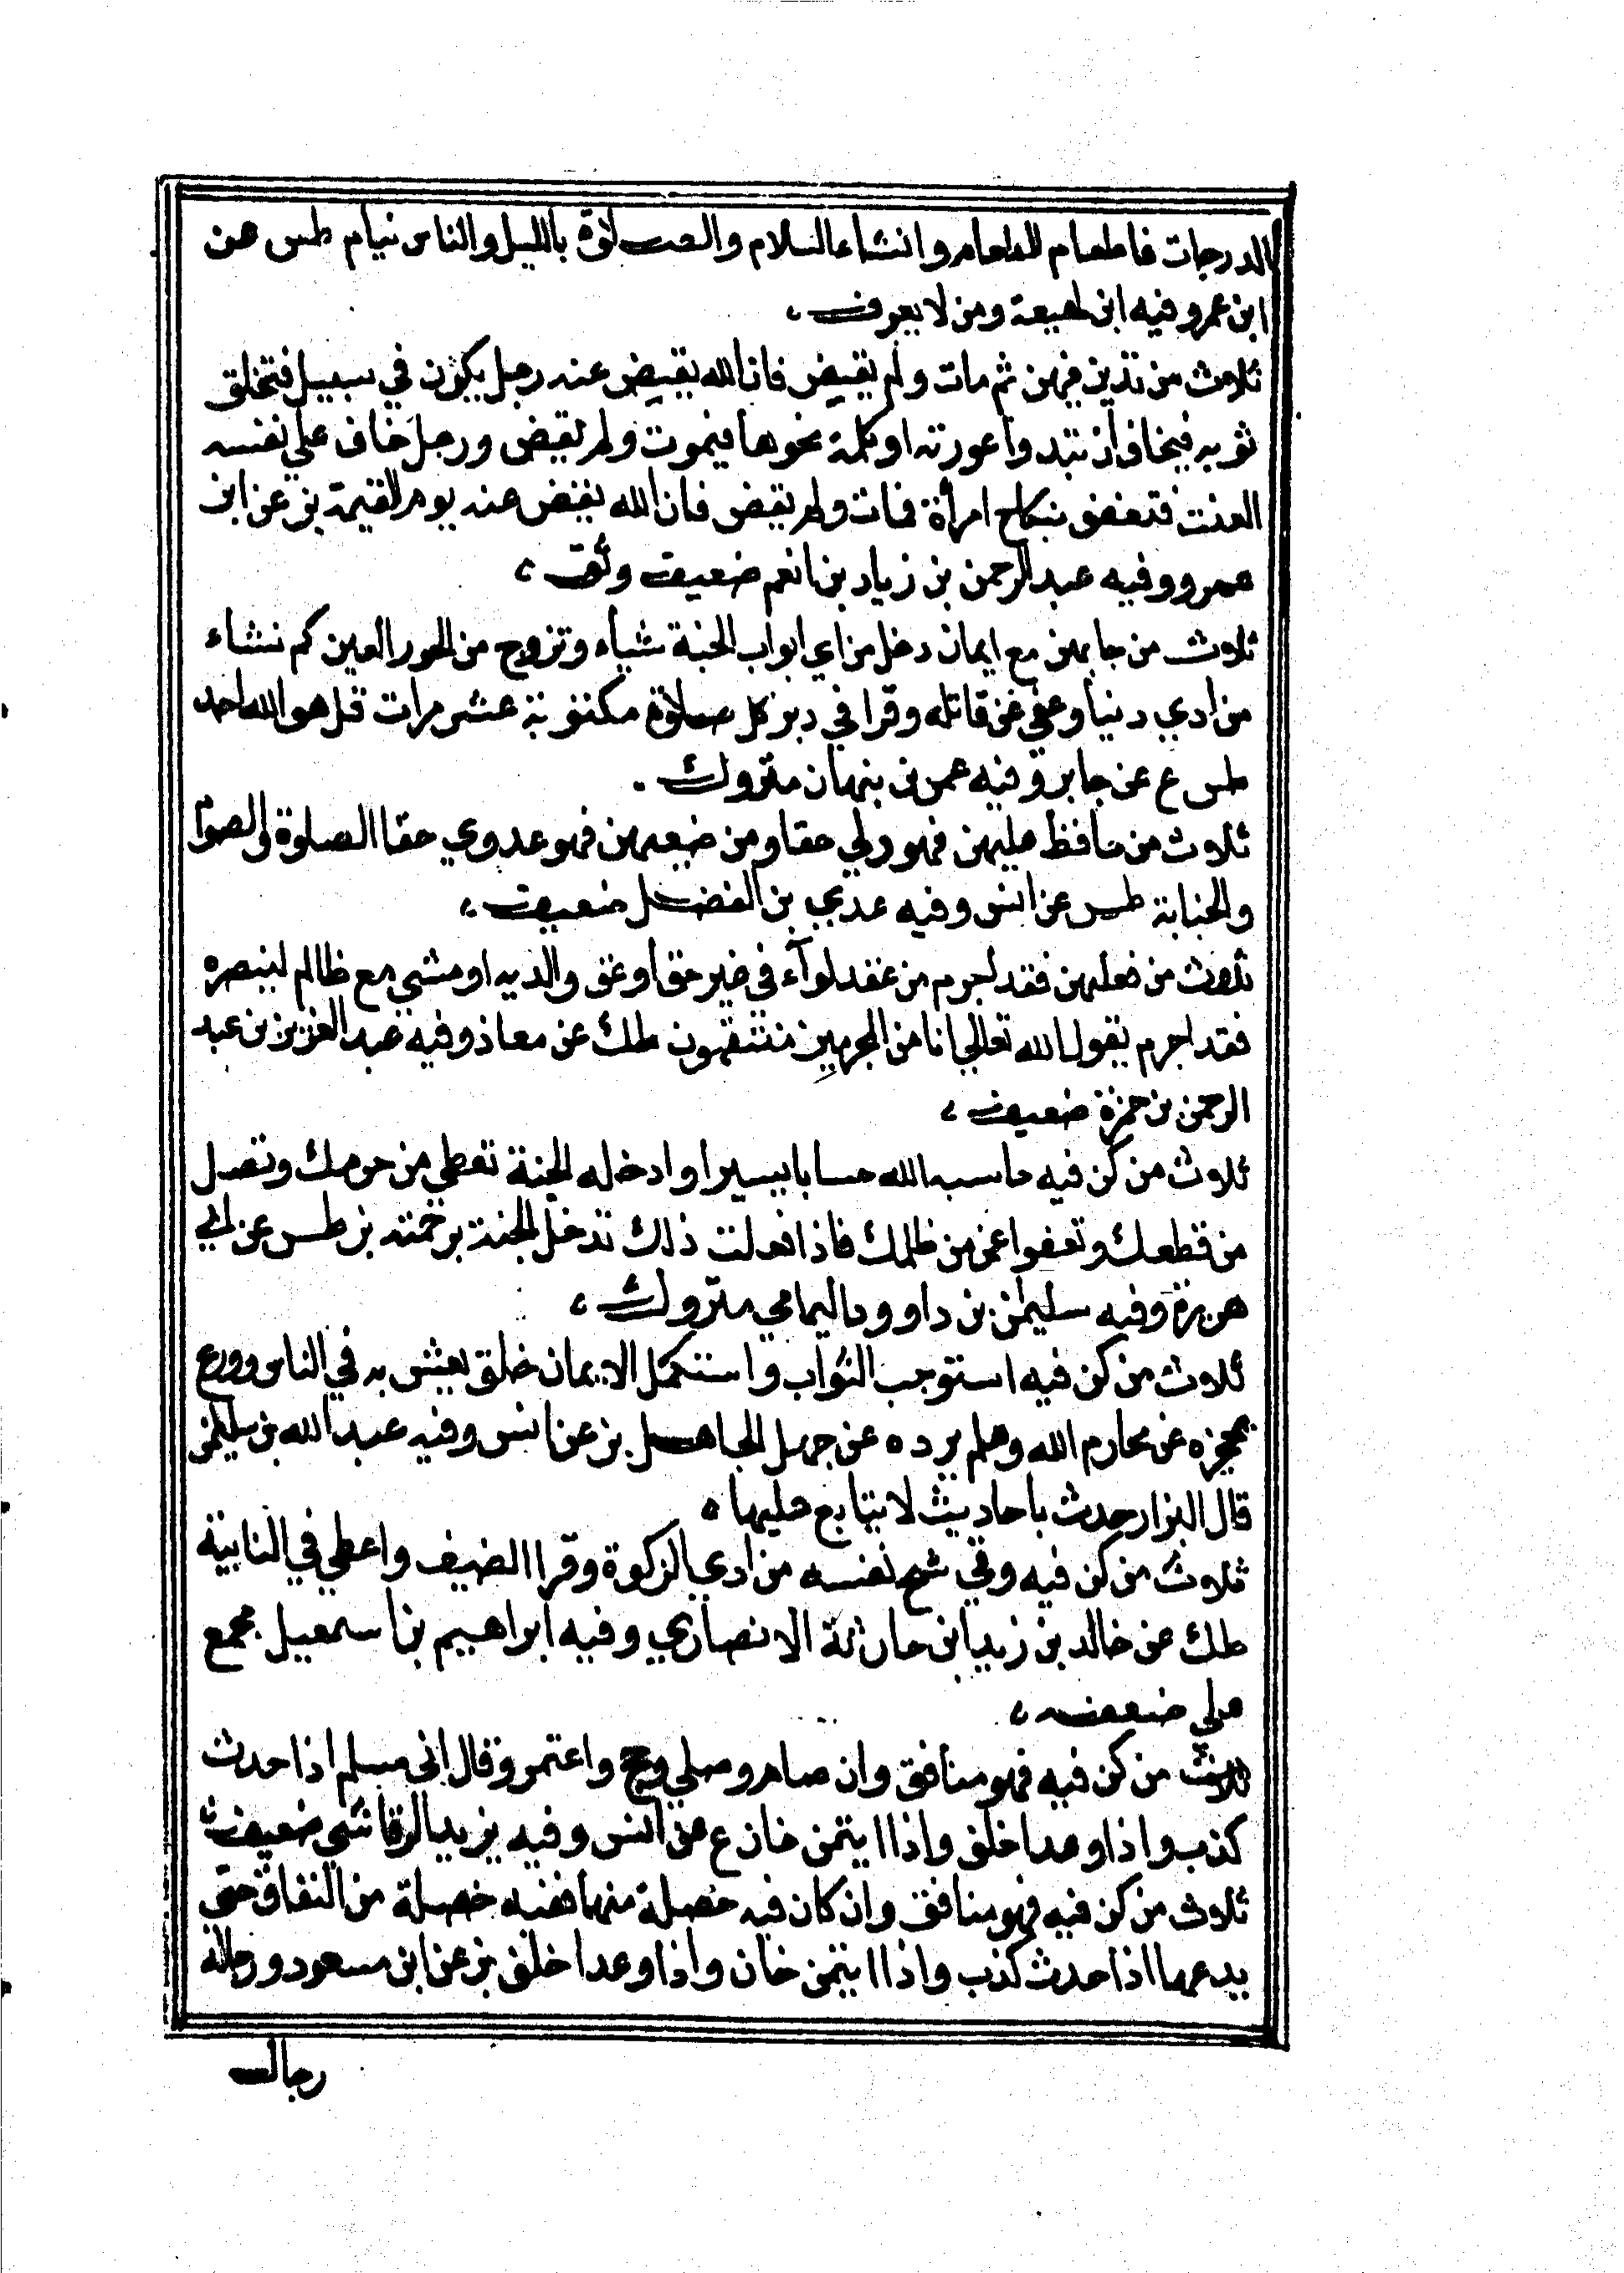 الدرجات فاطعام الطعام وانشاء السلام والصلاوة بالليل والناس نيام طس عن
ابن عمر وفيه ابن لهيعة ومن لا يعرف ،
ثلاث من تدين فيهن ثم مات ولم يقيض فان الله يقيض عنه رجل يكون في سبيل فتخلق
ثوبه فيخاف ان تبدوا عورته او كلمة نحوها فيموت ولم يقيض ورجل خاف علي نفسه
العنت فتعفف بنكاح امرأة فمات ولم يقض فان الله يقض عنه يوم القيمة بز عن ابن
عمرو وفيه عبد الرحمن بن زياد بن انعم ضعيف وثق ،
ثلاث من جا بهن مع ايمان دخل من اي ابواب الجنة شاء وتزوج من الحور العين كم نشاء
من ادي دنيا وعفي عن قاتله وقرا في دبر كل صلاوة مكتوبة عشر مرات قل هو الله احد
طس ع عن جابر وفيه عمر بن بنهان متروك .
ثلاث من حافظ عليهن فهو ولي حقا ومن ضيعهن فهو عدوي حقا الصلوة والصوم
والجنابة طس عن انس وفيه عدي بن الفضل ضعيف ،
ثلاث من فعلهن فقد اجرم من عقد لوآء في غير حق او عق والديه او مشي مع ظالم لينصره
فقد اجرم يقول الله تعالي انا من المجرمين منتقمون طك عن معاذ وفيه عبد العزيز بن عبد
الرحمن بن حمزة ضعيف ،
ثلاث من كن فيه حاسبه الله حسابا يسيرا وادخله الجنة تعطي من حرمك وتصل
من قطعك وتعفوا عمن ظلمك فاذا فعلت ذلك تدخل الجنة برحمته بز طس عن ابي
هريرة وفيه سليمن بن داوود اليمامي متروك ،
ثلاث من كن فيه استوجب الثواب واستكمل الايمان خلق يعيش به في الناس وورع
يحجزه عن محارم الله وحلم يرده عن جهل الجاهل بز عن انس وفيه عبد الله بن سليمن
قال البزار حدث باحاديث لا يتابع عليها ه
ثلاث من كن فيه وقي شح نفسه من ادي الزكوة وقرا الضيف واعطي في النايبة
طك عن خالد بن زيد ابن حارثة الانصاري وفيه ابراهيم بن اسمعيل مجمع
علي ضعفه ،
ثلاث من كن فيه فهو منافق وان صام وصلي وحج واعتمر وقال اني مسلم اذا حدث
كذب واذا وعد اخلف واذا ايتمن خان ع عن انس وفيه يزيد الرقاشي ضعيف
ثلاث من كن فيه فهو منافق وان كان فيه خصلة منها ففيه خصلة من النفاق حتي
يدعها اذا حدث كذب واذا ايتمن خان واذا وعد اخلف بز عن ابن مسعود ورجاله
رجال